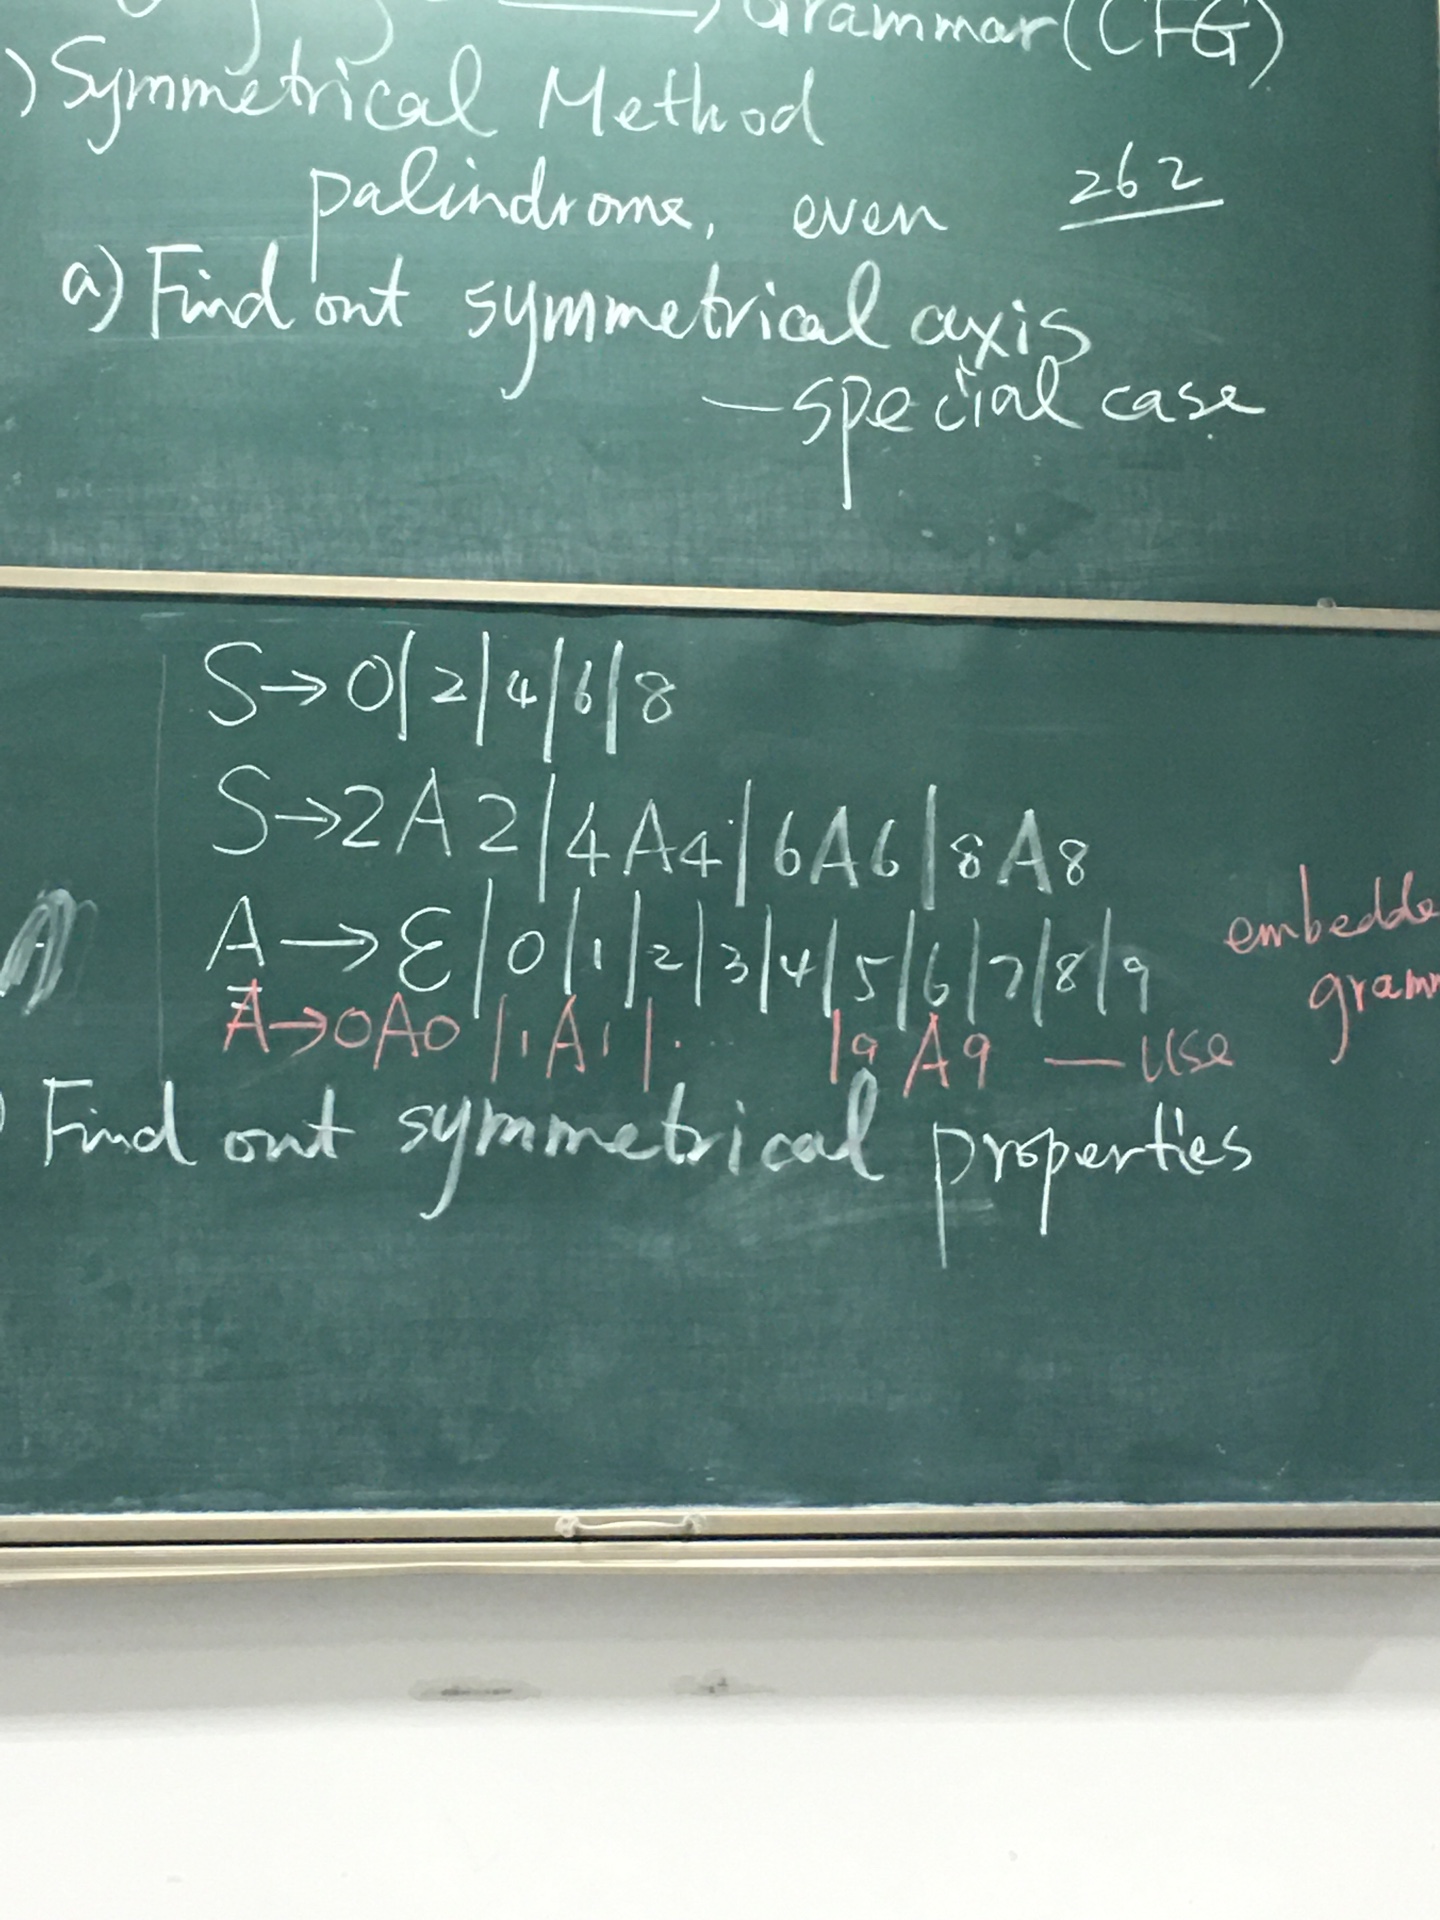 Grammar(CFG)
) Symmetrical Method
palindrome, even 262
a) Find out symmetrical axis
— special case
S→0|2|4|6|8
S→2A2|4A4|6A6|8A8
A→ε|0|1|2|3|4|5|6|7|8|9
A→0A0|1A1|... |9A9 — use
embedde
gram
) Find out symmetrical properties